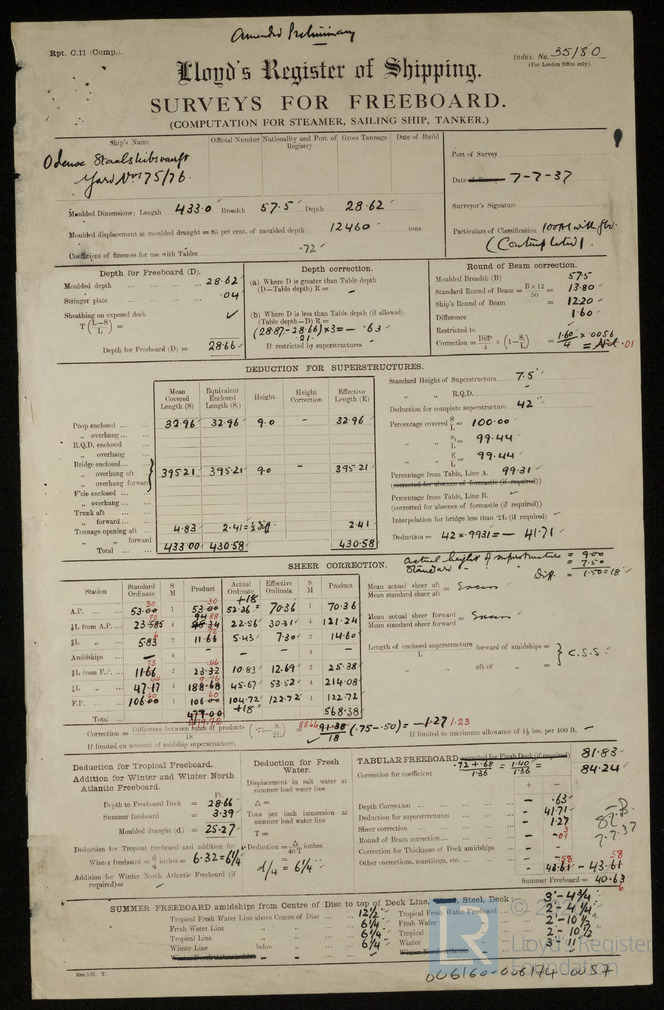 Amended Preliminary
Rpt. C.11 (Comp.).
Index. No. 35180
(For London Office only).
Lloyd's Register of Shipping.
SURVEYS FOR FREEBOARD.
(COMPUTATION FOR STEAMER, SAILING SHIP, TANKER.)
Ship's Name
Official Number
Nationality and Port of Registry
Gross Tonnage
Date of Build
Port of Survey
Odense Staalskibsværft
Yard Nos 75/76.
Date of Survey 7-7-37
Surveyor's Signature
Particulars of Classification 100A1 with fbd.
(Contemplated).
Moulded Dimensions: Length 433.0 Breadth 57.5 Depth 28.62
Moulded displacement at moulded draught = 85 per cent. of moulded depth 12460 tons
Coefficient of fineness for use with Tables .72
Depth for Freeboard (D).
Moulded depth 28.62
Stringer plate .04
Sheathing on exposed deck
T (L-S/L) =
Depth for Freeboard (D) = 28.66
Depth correction.
(a) Where D is greater than Table depth
(D-Table depth) R =
(b) Where D is less than Table depth (if allowed)
(Table depth-D) R =
(28.87-28.66) x 3 = - .63
.21
If restricted by superstructures
Round of Beam correction.
Moulded Breadth (B) 57.5
Standard Round of Beam = B x 12/50 = 13.80
Ship's Round of Beam = 12.20
Difference 1.60
Restricted to
Correction = Diff/4 x (1-S/L) = 1.60/4 x .0056
= Nil .01
DEDUCTION FOR SUPERSTRUCTURES.
Mean Covered Length (S)
Equivalent Enclosed Length (S₁)
Height
Height Correction
Effective Length (E)
Poop enclosed 32.96 32.96 9.0 - 32.96
„ overhang
R.Q.D. enclosed
„ overhang
Bridge enclosed
„ overhang aft 395.21 395.21 9.0 - 395.21
„ overhang forward
F'cle enclosed
„ overhang
Trunk aft
„ forward
Tonnage opening aft 4.83 2.41 = ½ diff. 2.41
„ „ forward
Total 433.00 430.58 430.58
Standard Height of Superstructure 7.5
„ „ R.Q.D. -
Deduction for complete superstructure 42
Percentage covered S/L = 100.00
„ „ S₁/L = 99.44
„ „ E/L = 99.44
Percentage from Table, Line A. 99.31
(corrected for absence of forecastle (if required))
Percentage from Table, Line B.
(corrected for absence of forecastle (if required))
Interpolation for bridge less than .2L (if required)
Deduction = 42 x .9931 = - 41.71
SHEER CORRECTION.
Actual height of superstructure = 9.00
Standard = 7.50
Diff. = 1.50 = 18
Station
Standard Ordinate
S M
Product
Actual Ordinate
Effective Ordinate
S M
Product
+18
A.P. 53.00 1 53.00 52.36 70.36 1 70.36
⅙L from A.P. 23.585 4 94.34 22.56 30.31 4 121.24
⅓L „ 5.83 2 11.66 5.43 7.30 2 14.60
Amidships - 4 - - - 4 -
⅓L from F.P. 11.66 2 23.32 10.83 12.69 2 25.38
⅙L „ 47.17 4 188.68 45.67 53.52 4 214.08
F.P. 106.00 1 106.00 104.72 122.72 1 122.72
+18
Total 477.00 568.38
Mean actual sheer aft / Mean standard sheer aft = Excess
Mean actual sheer forward / Mean standard sheer forward = Excess
Length of enclosed superstructure forward of amidships =
L
„ „ aft of „ =
C.S.S.
Correction = Difference between sums of products / 18 (.75 - S/2L) = 91.38/18 (.75-.50) = -1.27 1.23
If limited on account of midship superstructure.
If limited to maximum allowance of 1½ ins. per 100 ft. -
Deduction for Tropical Freeboard.
Addition for Winter and Winter North Atlantic Freeboard.
Ft.
Depth to Freeboard Deck = 28.66
Summer freeboard = 3.39
Moulded draught (d) = 25.27
Deduction for Tropical freeboard and addition for
Winter freeboard = d/4 inches = 6.32 = 6¼"
Addition for Winter North Atlantic Freeboard (if required) =
Deduction for Fresh Water.
Displacement in salt water at summer load water line
Δ =
Tons per inch immersion at summer load water line
T =
Deduction = Δ/40T inches
d/4 = 6¼"
TABULAR FREEBOARD corrected for Flush Deck (if required) 81.83
Correction for coefficient .72+.68/1.36 = 1.40/1.36 = 84.24
+ -
Depth Correction - .63
Deduction for superstructures - 41.71
Sheer correction - 1.27
Round of Beam correction -
Correction for Thickness of Deck amidships - -
Other corrections, scantlings, etc. - -
- 43.61 - 43.61
Summer Freeboard = 40.63
7.7.37
SUMMER FREEBOARD amidships from Centre of Disc to top of Deck Line, Steel, Deck 3'-4¾"
Tropical Fresh Water Line above Centre of Disc 12½"
Fresh Water Line „ „ 6¼"
Tropical Line „ „ 6¼"
Winter Line below „ 6¼"
Winter North Atlantic Line „ „ -
Tropical Fresh Water Freeboard 2'-4¼"
Fresh Water „ 2-10½
Tropical „ 2-10½
Winter „ 3-11
Winter North Atlantic „
Lloyd's Register
Foundation
006160-006174 0057